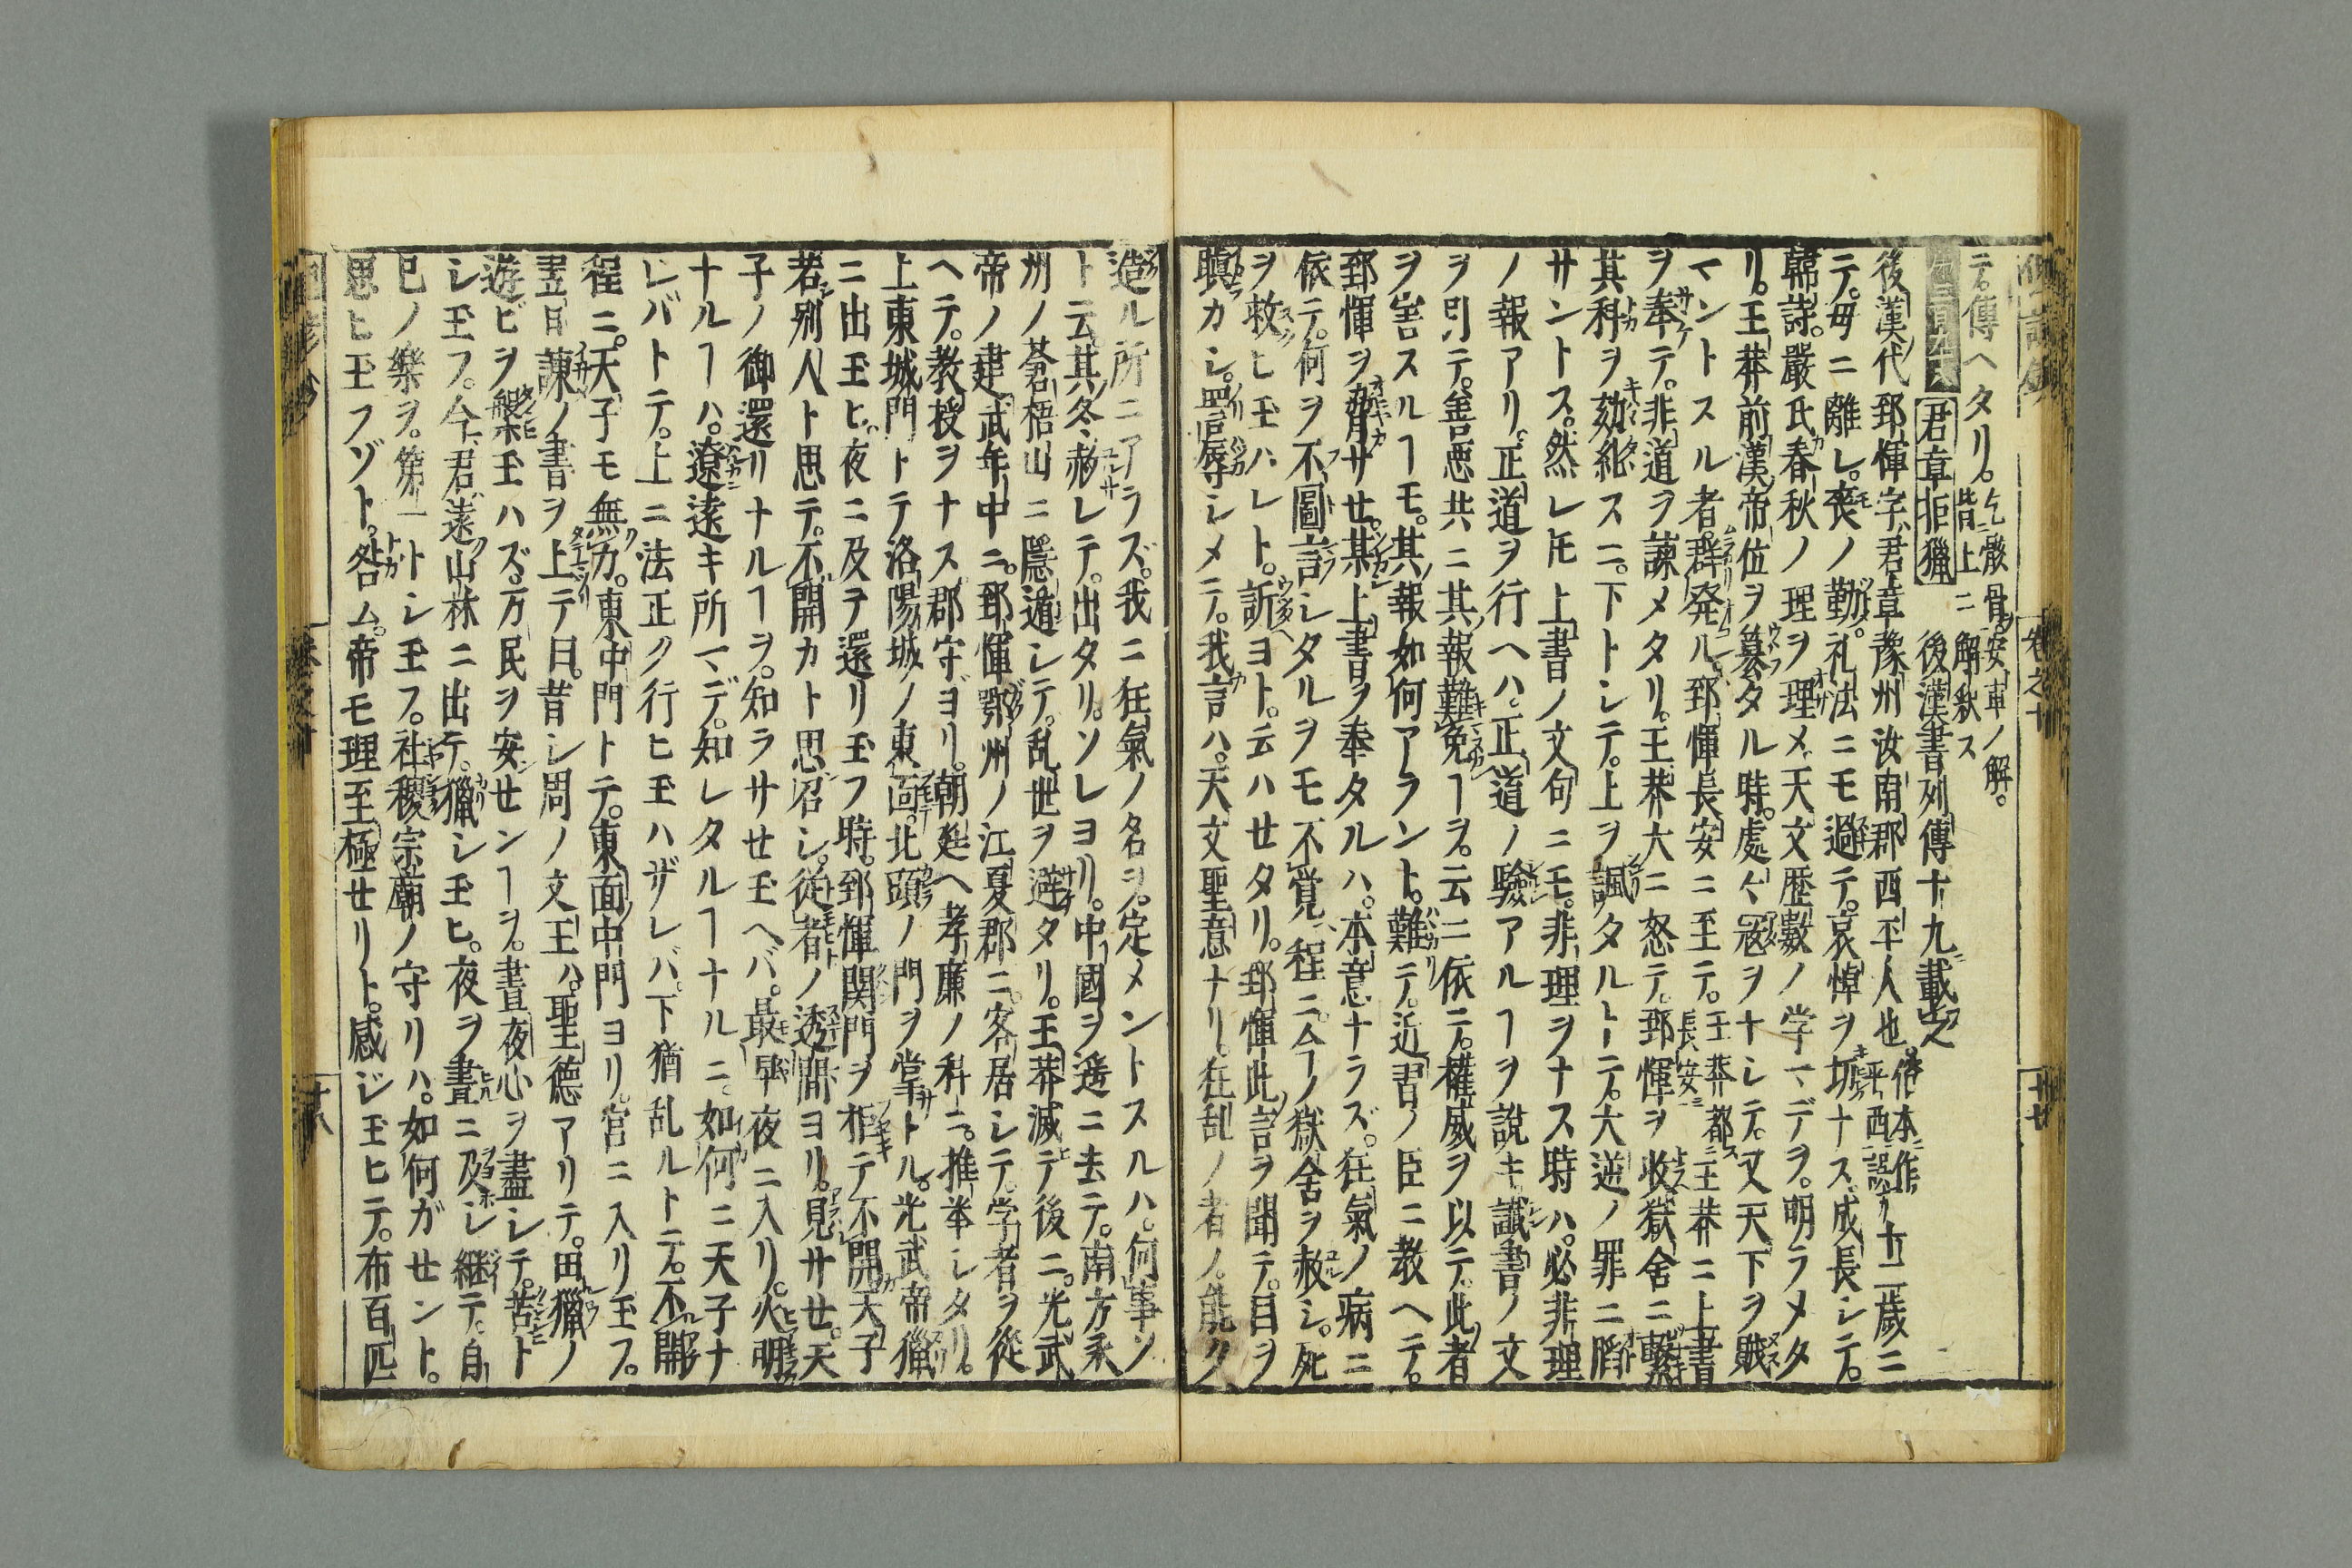 テ。傳ヘタリ。乞骸骨。安車ノ解。
皆上ニ解釈ス
君章拒獵 後漢書列傳十九載之
後漢代郅惲字君章豫州汝南郡西平人也。俗本作平西誤リ十二歳ニ
テ。母ニ離レ。喪ノ勤。礼法ニモ過テ。哀悼ヲ切ナス。成長シテ。
韓詩。嚴氏春秋ノ理ヲ理メ天文歴數ノ学マデヲ。明ラメタ
リ。王莽前漢帝位ヲ簒タル時。處々寇ヲナシテ。又天下ヲ賊
マントスル者。群発ル郅惲長安ニ至テ。王莽都長安ニス王莽ニ上書
ヲ奉テ。非道ヲ諫メタリ。王莽大ニ怒テ。郅惲ヲ收獄舍ニ繋
其科ヲ劾糺スニ。下トシテ。上ヲ諷タルトテ。大逆ノ罪ニ
サントス。然レトモ上書ノ文句ニモ。非理ヲナス時ハ。必非理
ノ報アリ。正道ヲ行ヘハ。正道ノ驗アルヿヲ説キ。讖書ノ文
ヲ引テ。善悪共ニ其報難免ヿヲ。云ニ依テ。權威ヲ以テ。此者
ヲ害スルヿモ。其報如何アラント。難テ。近習ノ臣ニ教ヘテ。
郅惲ヲ脅サせ。某上書ヲ奉タルハ。本意ナラズ。狂氣ノ病ニ
依テ。何ヲ不圖言シタルヲモ不覺程ニ。今ノ獄舍ヲ赦シ。死
ヲ救ヒ玉ハレト。訴ヨト。云ハせタリ。郅惲此言ヲ聞テ。目ヲ
瞋カシ。詈辱シメテ。我言ハ。天文聖意ナリ。狂乱ノ者ノ。能ク
造ル所ニアラズ。我ニ狂氣ノ名ヲ。定メントスルハ。何事ソ
ト云。其冬赦レテ。出タリ。ソレヨリ。中國ヲ遙ニ去テ。南方
州ノ蒼梧山ニ隱遁シテ。乱世ヲ避タリ。王莽滅テ後ニ。光武
帝ノ建武年中ニ。郅惲鄂州ノ江夏郡ニ。客居シテ。学者ヲ從
ヘテ。教授ヲナス。郡守ヨリ。朝廷ヘ孝廉ノ科ニ。推挙シタリ。
上東城門トテ洛陽城ノ東面。北頭ノ門ヲ掌トル。光武帝獵
ニ出玉ヒ。夜ニ及テ還リ玉フ時。郅惲関門ヲ拒テ不開天子
若別人ト思テ。不開カト思召シ。從者ノ透間ヨリ。見サせ。天
子ノ御還リナルヿヲ。知ラサせ玉ヘバ。最早夜ニ入リ。火明
ナルヿハ。遼遠キ所マデ。知レタルヿナルニ。如何ニ天子ナ
レバトテ。上ニ法正ク行ヒ玉ハザレバ。下猶乱ルトテ。不開
程ニ。天子モ無力。東中門トテ。東面中門ヨリ。宮ニ入リ玉フ。
翌日諫ノ書ヲ上テ曰。昔シ周ノ文王ハ。聖德アリテ。田獵ノ
遊ビヲ樂玉ハズ。万民ヲ安せンヿヲ。晝夜心ヲ盡シテ。苦ト
シ玉フ。今君遠山林ニ出テ。獵シ玉ヒ。夜ヲ晝ニ及シ継テ。自
巳ノ樂ヲ。第一トシ玉フ。社稷宗廟ノ守リハ。如何ガせント。
思ヒ玉フゾト。咎ム。帝モ理至極せリト。感ジ玉ヒテ。布百匹